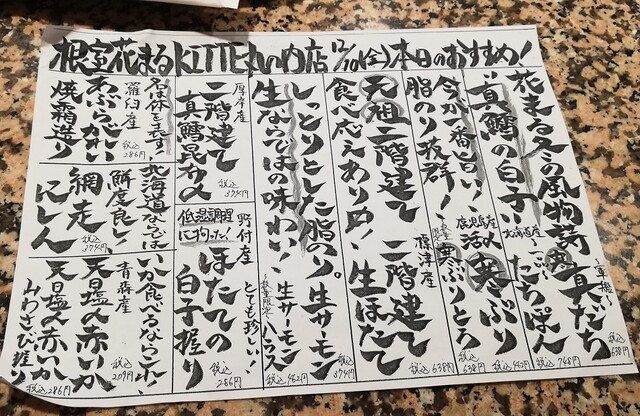 根室花まるKITTE丸の内店 12/10(金) 本日のおすすめ!
花まる冬の風物詩
〜軍艦〜
真だち
税込748円
"真鱈の白子"
北海道産
たちぽん
税込638円
今が一番旨い!
脂のり抜群!
鹿児島産
活〆寒ぶり
税込462円
寒ぶりとろ
税込638円
元祖二階建て
食べ応えありやす
標津産
二階建て
生ほたて
税込638円
しっとりとした脂のり。
生ならではの味わい
生サーモン
税込374円
数量限定
生サーモンハラス
税込462円
厚岸産
二階建て
真鱈昆布〆
税込374円
低温調理
に拘った!
野付産
ほたての
白子握り
とても珍しい、
税込286円
名は体を表す!
羅臼産
あぶらがれい
焼霜造り
税込286円
北海道ならでは
鮮度良し!
網走
にしん
税込374円
いか食べるならこれ、
青森産
天日塩〆赤いか
税込209円
天日塩〆赤いか
みわさび握り
税込286円